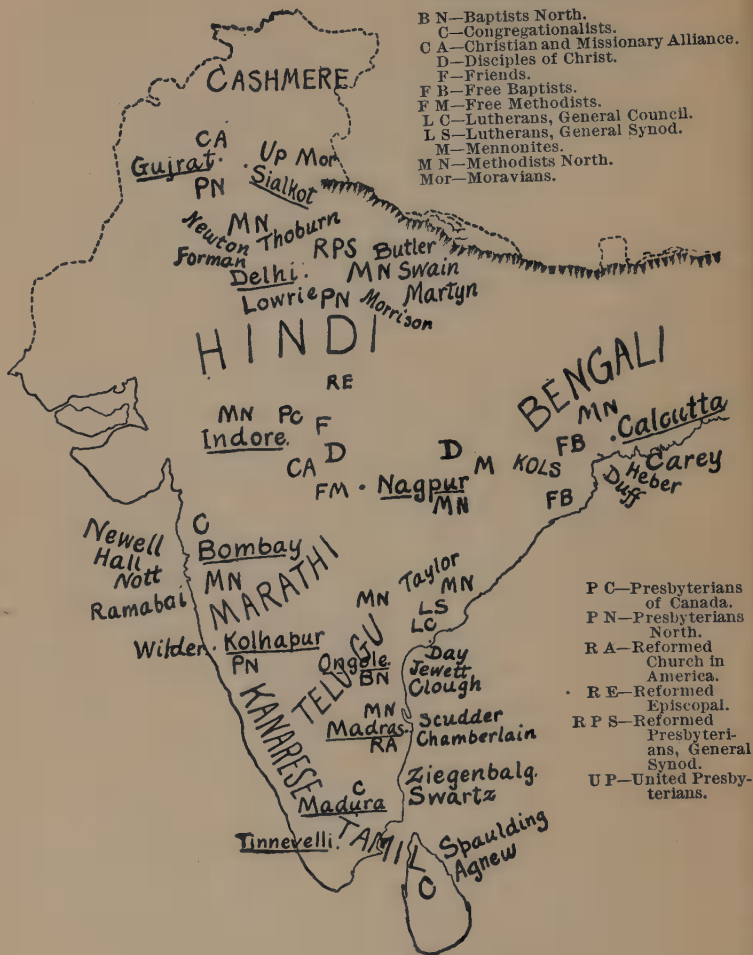 B N—Baptists North.
C—Congregationalists.
C A—Christian and Missionary Alliance.
D—Disciples of Christ.
F—Friends.
F B—Free Baptists.
F M—Free Methodists.
L C—Lutherans, General Council.
L S—Lutherans, General Synod.
M—Mennonites.
M N—Methodists North.
Mor—Moravians.
CASHMERE
CA
Gujrat
PN
UP Mor
Sialkot
MN
Newton Thoburn
Forman
RPS Butler
Delhi
MN Swain
Lowrie PN Morrison Martyn
HINDI
RE
MN PC F
Indore
CA D
FM
D
M
Nagpur
MN
KOLS
BENGALI
MN
Calcutta
FB
Carey
Heber
Duff
FB
Newell
Hall
Nott
Ramabai
C
Bombay
MN
MARATHI
Wilder
Kolhapur
PN
Taylor
MN
MN
LS
LC
TELUGU
Ongole
BN
Day
Jewett
Clough
KANARESE
MN
Madras
RA
Scudder
Chamberlain
Ziegenbalg
Swartz
C
Madura
Tinnevelli
TAMIL
C
Spaulding
Agnew
P C—Presbyterians
of Canada.
P N—Presbyterians
North.
R A—Reformed
Church in
America.
R E—Reformed
Episcopal.
R P S—Reformed
Presbyteri-
ans, General
Synod.
U P—United Presby-
terians.